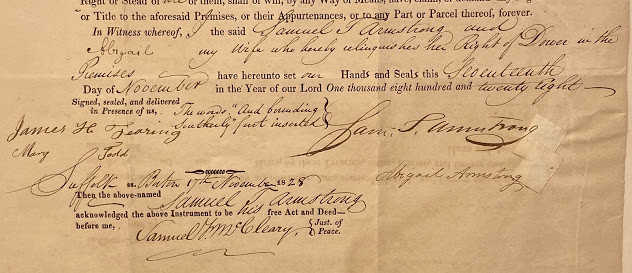 Right or Stead of me or them, shall or will, by any Way or Means, have, claim, or demand any
or Title to the aforesaid Premises, or their Appurtenances, or to any Part or Parcel thereof, forever.
In Witness whereof, I the said Samuel T Armstrong and
Abigail my Wife who hereby relinquishes her Right of Dower in the
Premises have hereunto set our Hands and Seals this Seventeenth
Day of November in the Year of our Lord One thousand eight hundred and twenty eight
Signed, sealed, and delivered
in Presence of us, The words "And bounding
Southerly" first inserted
James H. Fearing Sam. T. Armstrong
Mary Todd
Abigail Armstrong
Suffolk ss. Boston 17th November 1828
Then the above-named Samuel T Armstrong
acknowledged the above Instrument to be his free Act and Deed—
before me, Samuel F. McCleary, Just. of
Peace.